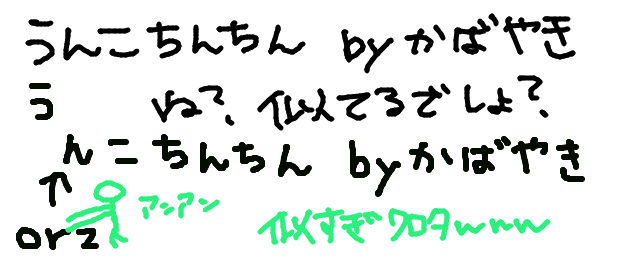 うんこちんちん byかばやき
う ね?、似てるでしょ?、
んこちんちん byかばやき
↑ アンアン
orz 似すぎワロタwww